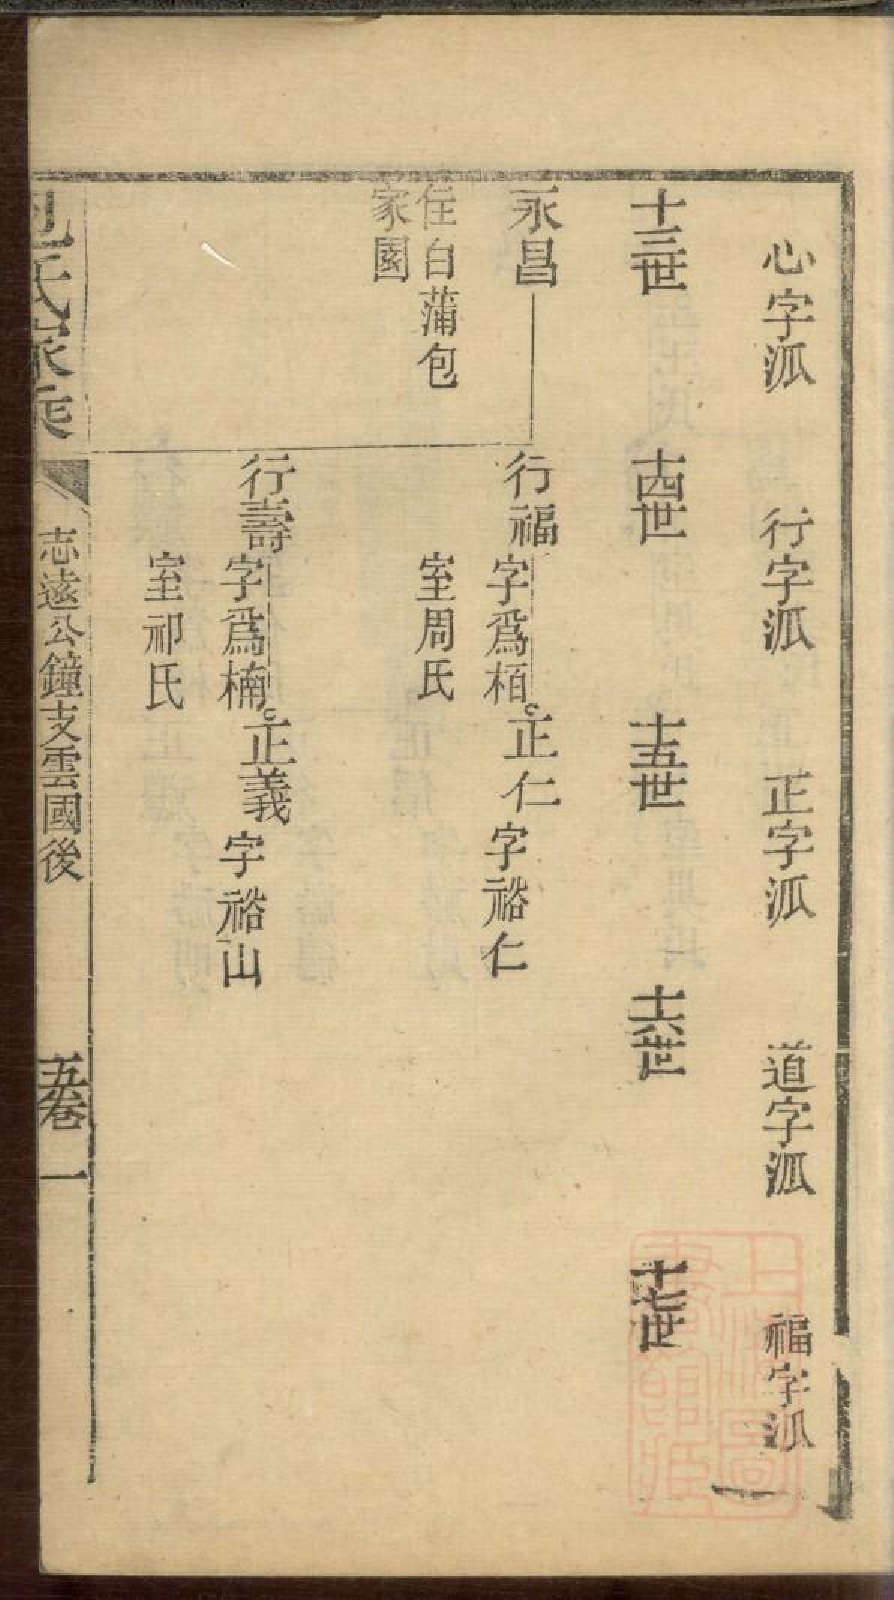 心字派 行字派 正字派 道字派 福字派
十三世 十四世 十五世 十六世 十七世
永昌 行福 字爲栢 正仁 字裕仁
住白蒲包 室周氏
家園
行壽 字爲楠 正義 字裕山
室祁氏
包氏家乘 志遠公鐘支雲國後 五卷 一
上海圖書館藏